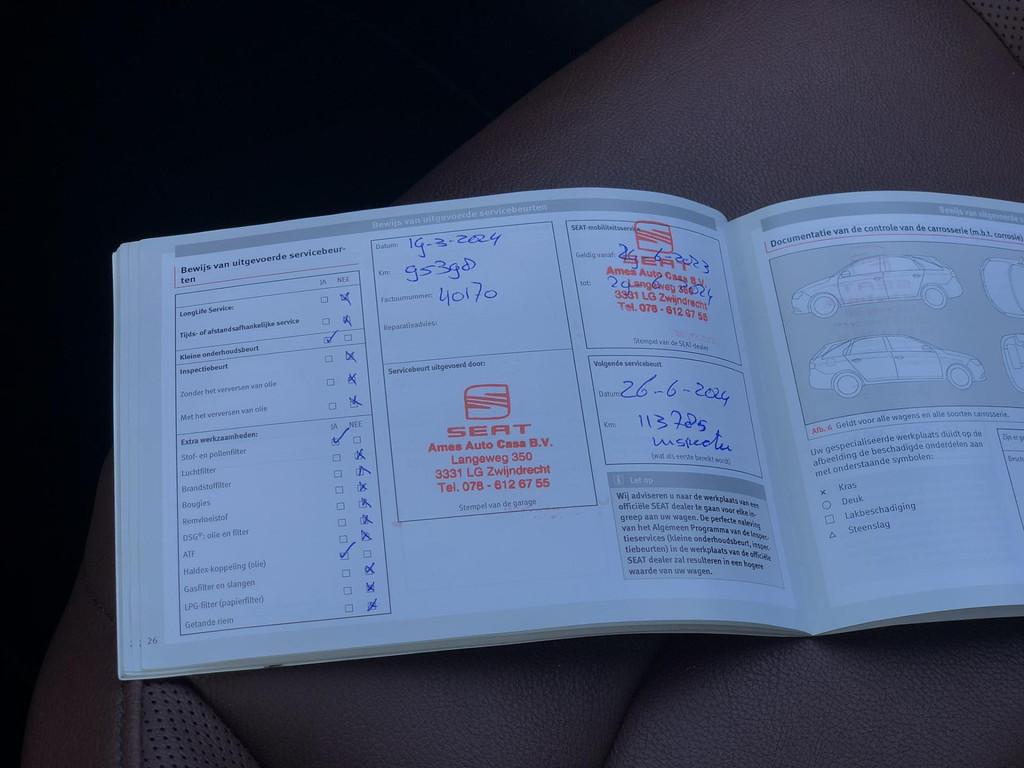 Bewijs van uitgevoerde servicebeurten
Bewijs van uitgevoerde servicebeur-
ten
JA NEE
LongLife Service:
Tijds- of afstandsafhankelijke service
Kleine onderhoudsbeurt
Inspectiebeurt
Zonder het verversen van olie
Met het verversen van olie
Extra werkzaamheden:
JA NEE
Stof- en pollenfilter
Luchtfilter
Brandstoffilter
Bougies
Remvloeistof
DSG®: olie en filter
ATF
Haldex-koppeling (olie)
Gasfilter en slangen
LPG-filter (papierfilter)
Getande riem
26
Datum: 19-3-2024
Km: 95398
Factuurnummer: 40170
Reparatieadvies:
Servicebeurt uitgevoerd door:
SEAT
Ames Auto Casa B.V.
Langeweg 350
3331 LG Zwijndrecht
Tel. 078 - 612 67 55
Stempel van de garage
SEAT-mobiliteitsservice
Geldig vanaf: 6-2023
tot: 2024
SEAT
Ames Auto Casa B.V.
Langeweg 350
3331 LG Zwijndrecht
Tel. 078 - 612 67 55
Stempel van de SEAT-dealer
Volgende servicebeurt
Datum: 26-6-2024
Km: 113785
inspectie
(wat als eerste bereikt wordt)
i Let op
Wij adviseren u naar de werkplaats van een
officiële SEAT dealer te gaan voor elke in-
greep aan uw wagen. De perfecte naleving
van het Algemeen Programma van de Inspec-
tieservices (kleine onderhoudsbeurt, inspec-
tiebeurten) in de werkplaats van de officiële
SEAT dealer zal resulteren in een hogere
waarde van uw wagen.
Bewijs van uitgevoerde
Documentatie van de controle van de carrosserie (m.b.t. corrosie)
Afb. 6 Geldt voor alle wagens en alle soorten carrosserie.
Uw gespecialiseerde werkplaats duidt op de
afbeelding de beschadigde onderdelen aan
met onderstaande symbolen:
x Kras
○ Deuk
□ Lakbeschadiging
△ Steenslag